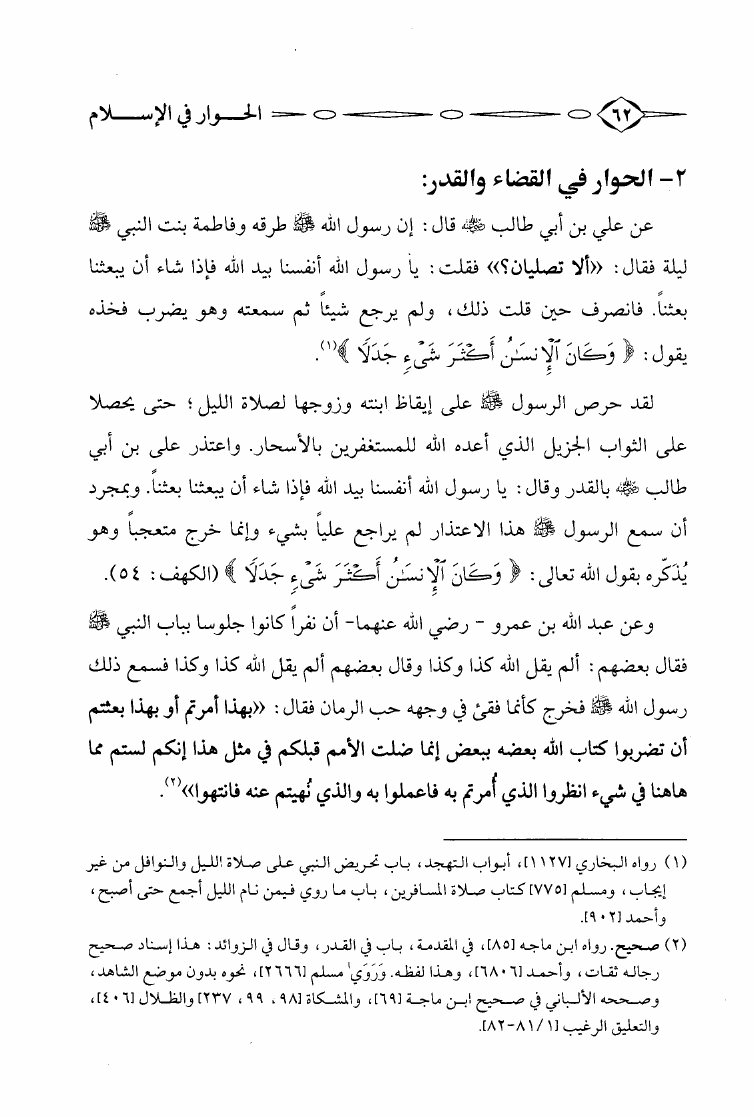 ٦٢ الحـــوار في الإســـلام
٢- الحوار في القضاء والقدر:
عن علي بن أبي طالب ﵁ قال: إن رسول الله ﷺ طرقه وفاطمة بنت النبي ﷺ
ليلة فقال: «ألا تصليان؟» فقلت: يا رسول الله أنفسنا بيد الله فإذا شاء أن يبعثنا
بعثناً. فانصرف حين قلت ذلك، ولم يرجع شيئاً ثم سمعته وهو يضرب فخذه
يقول: ﴿ وَكَانَ ٱلْإِنسَـٰنُ أَكْثَرَ شَىْءٍ جَدَلًا ﴾(١).
لقد حرص الرسول ﷺ على إيقاظ ابنته وزوجها لصلاة الليل؛ حتى يحصلا
على الثواب الجزيل الذي أعده الله للمستغفرين بالأسحار. واعتذر على بن أبي
طالب ﵁ بالقدر وقال: يا رسول الله أنفسنا بيد الله فإذا شاء أن يبعثنا بعثناً. وبمجرد
أن سمع الرسول ﷺ هذا الاعتذار لم يراجع علياً بشيء وإنما خرج متعجباً وهو
يُذكّره بقول الله تعالى: ﴿ وَكَانَ ٱلْإِنسَـٰنُ أَكْثَرَ شَىْءٍ جَدَلًا ﴾ (الكهف: ٥٤).
وعن عبد الله بن عمرو - رضي الله عنهما- أن نفراً كانوا جلوسا بباب النبي ﷺ
فقال بعضهم: ألم يقل الله كذا وكذا وقال بعضهم ألم يقل الله كذا وكذا فسمع ذلك
رسول الله ﷺ فخرج كأنما فقئ في وجهه حب الرمان فقال: «بهذا أمرتم أو بهذا بعثتم
أن تضربوا كتاب الله بعضه ببعض إنما ضلت الأمم قبلكم في مثل هذا إنكم لستم مما
هاهنا في شيء انظروا الذي أُمرتم به فاعملوا به والذي نُهيتم عنه فانتهوا»(٢).
(١) رواه البخاري [١١٢٧]، أبواب التهجد، باب تحريض النبي على صلاة الليل والنوافل من غير
إيجاب، ومسلم [٧٧٥] كتاب صلاة المسافرين، باب ما روي فيمن نام الليل أجمع حتى أصبح،
وأحمد [٩٠٢].
(٢) صحيح. رواه ابن ماجه [٨٥]، في المقدمة، باب في القدر، وقال في الزوائد: هذا إسناد صحيح
رجاله ثقات، وأحمد [٦٨٠٦]، وهذا لفظه. وَرَوَي مسلم [٢٦٦٦]، نحوه بدون موضع الشاهد،
وصححه الألباني في صحيح ابن ماجة [٦٩]، والمشكاة [٩٨، ٩٩، ٢٣٧] والظلال [٤٠٦]،
والتعليق الرغيب [١/ ٨١-٨٢].